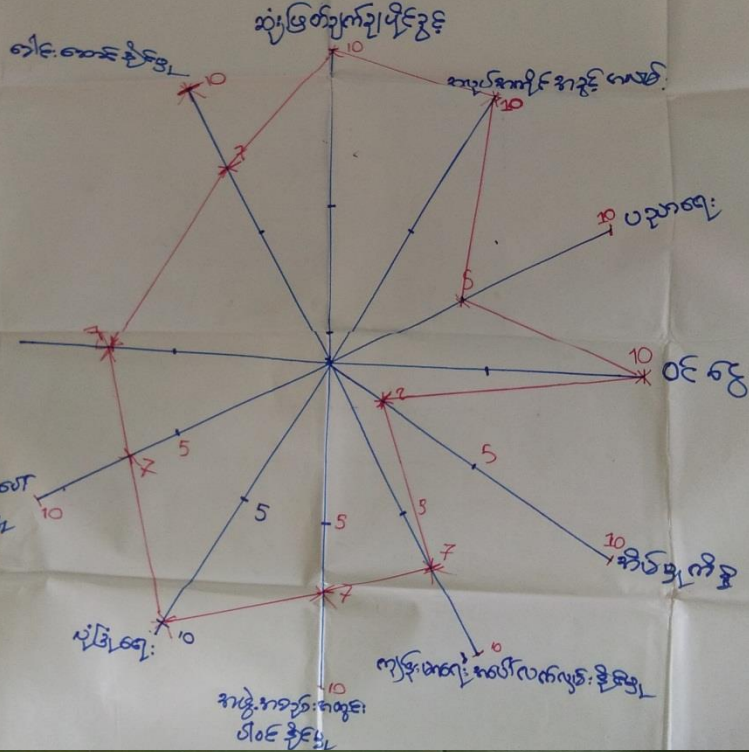 ဆုံးဖြတ်ချက်ချပိုင်ခွင့်
10
ခေါင်းဆောင်နိုင်မှု
10
အလုပ်အကိုင်အခွင့်အလမ်း
10
7
10
ပညာရေး
5
7
10
ဝင်ငွေ
2
5
7
5
10
5
5
5
7
10
အိမ်မှုကိစ္စ
7
10
လုံခြုံရေး
10
ကျန်းမာရေးအပေါ်လက်လှမ်းမှီနိုင်မှု
10
အဖွဲ့အစည်းအတွင်း
ပါဝင်နိုင်မှု